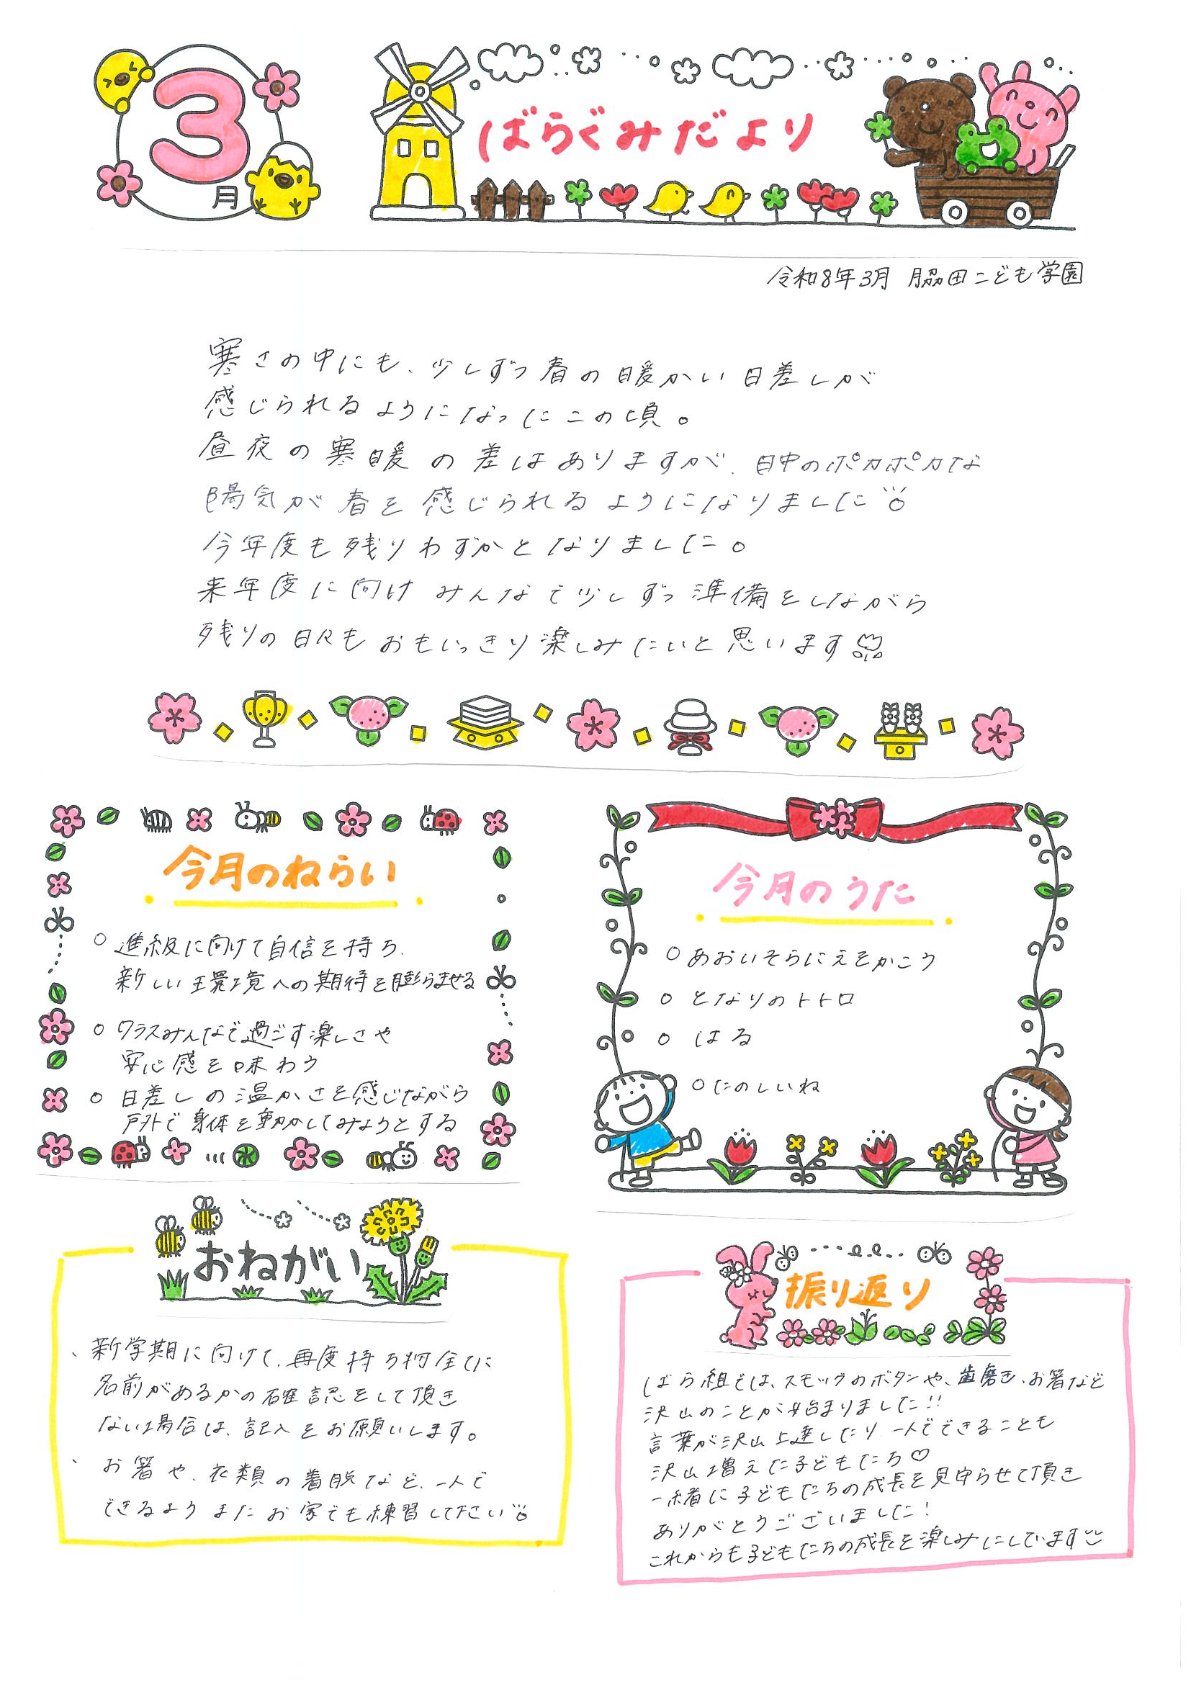 3
月
ばらぐみだより
令和8年3月 脇田こども学園
寒さの中にも、少しずつ春の暖かい日差しが
感じられるようになったこの頃。
昼夜の寒暖の差はありますが、日中のポカポカな
陽気が春を感じられるようになりました
今年度も残りわずかとなりました。
来年度に向けみんなで少しずつ準備をしながら
残りの日々もおもいっきり楽しみたいと思います
今月のねらい
○ 進級に向けて自信を持ち、
新しい環境への期待を膨らませる
○ クラスみんなで過ごす楽しさや
安心感を味わう
○ 日差しの温かさを感じながら
戸外で身体を動かしてみようとする
今月のうた
○ あおいそらにえをかこう
○ となりのトトロ
○ はる
○ たのしいね
おねがい
、新学期に向けて、再度持ち物全てに
名前があるかの確認をして頂き
ない場合は、記入をお願いします。
、お箸や、衣類の着脱など、一人で
できるようまたお家でも練習して下さい
振り返り
ばら組では、スモックのボタンや、歯磨き、お箸など
沢山のことが始まりました!!
言葉が沢山上達したり一人でできることも
沢山増えた子どもたち♡
一緒に子どもたちの成長を見守らせて頂き
ありがとうございました!
これからも子どもたちの成長を楽しみにしています